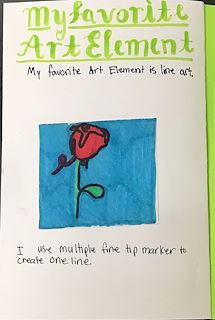 My favorite
Art Element
My favorite Art Element is line art.
I use multiple fine tip marker to
create one line.